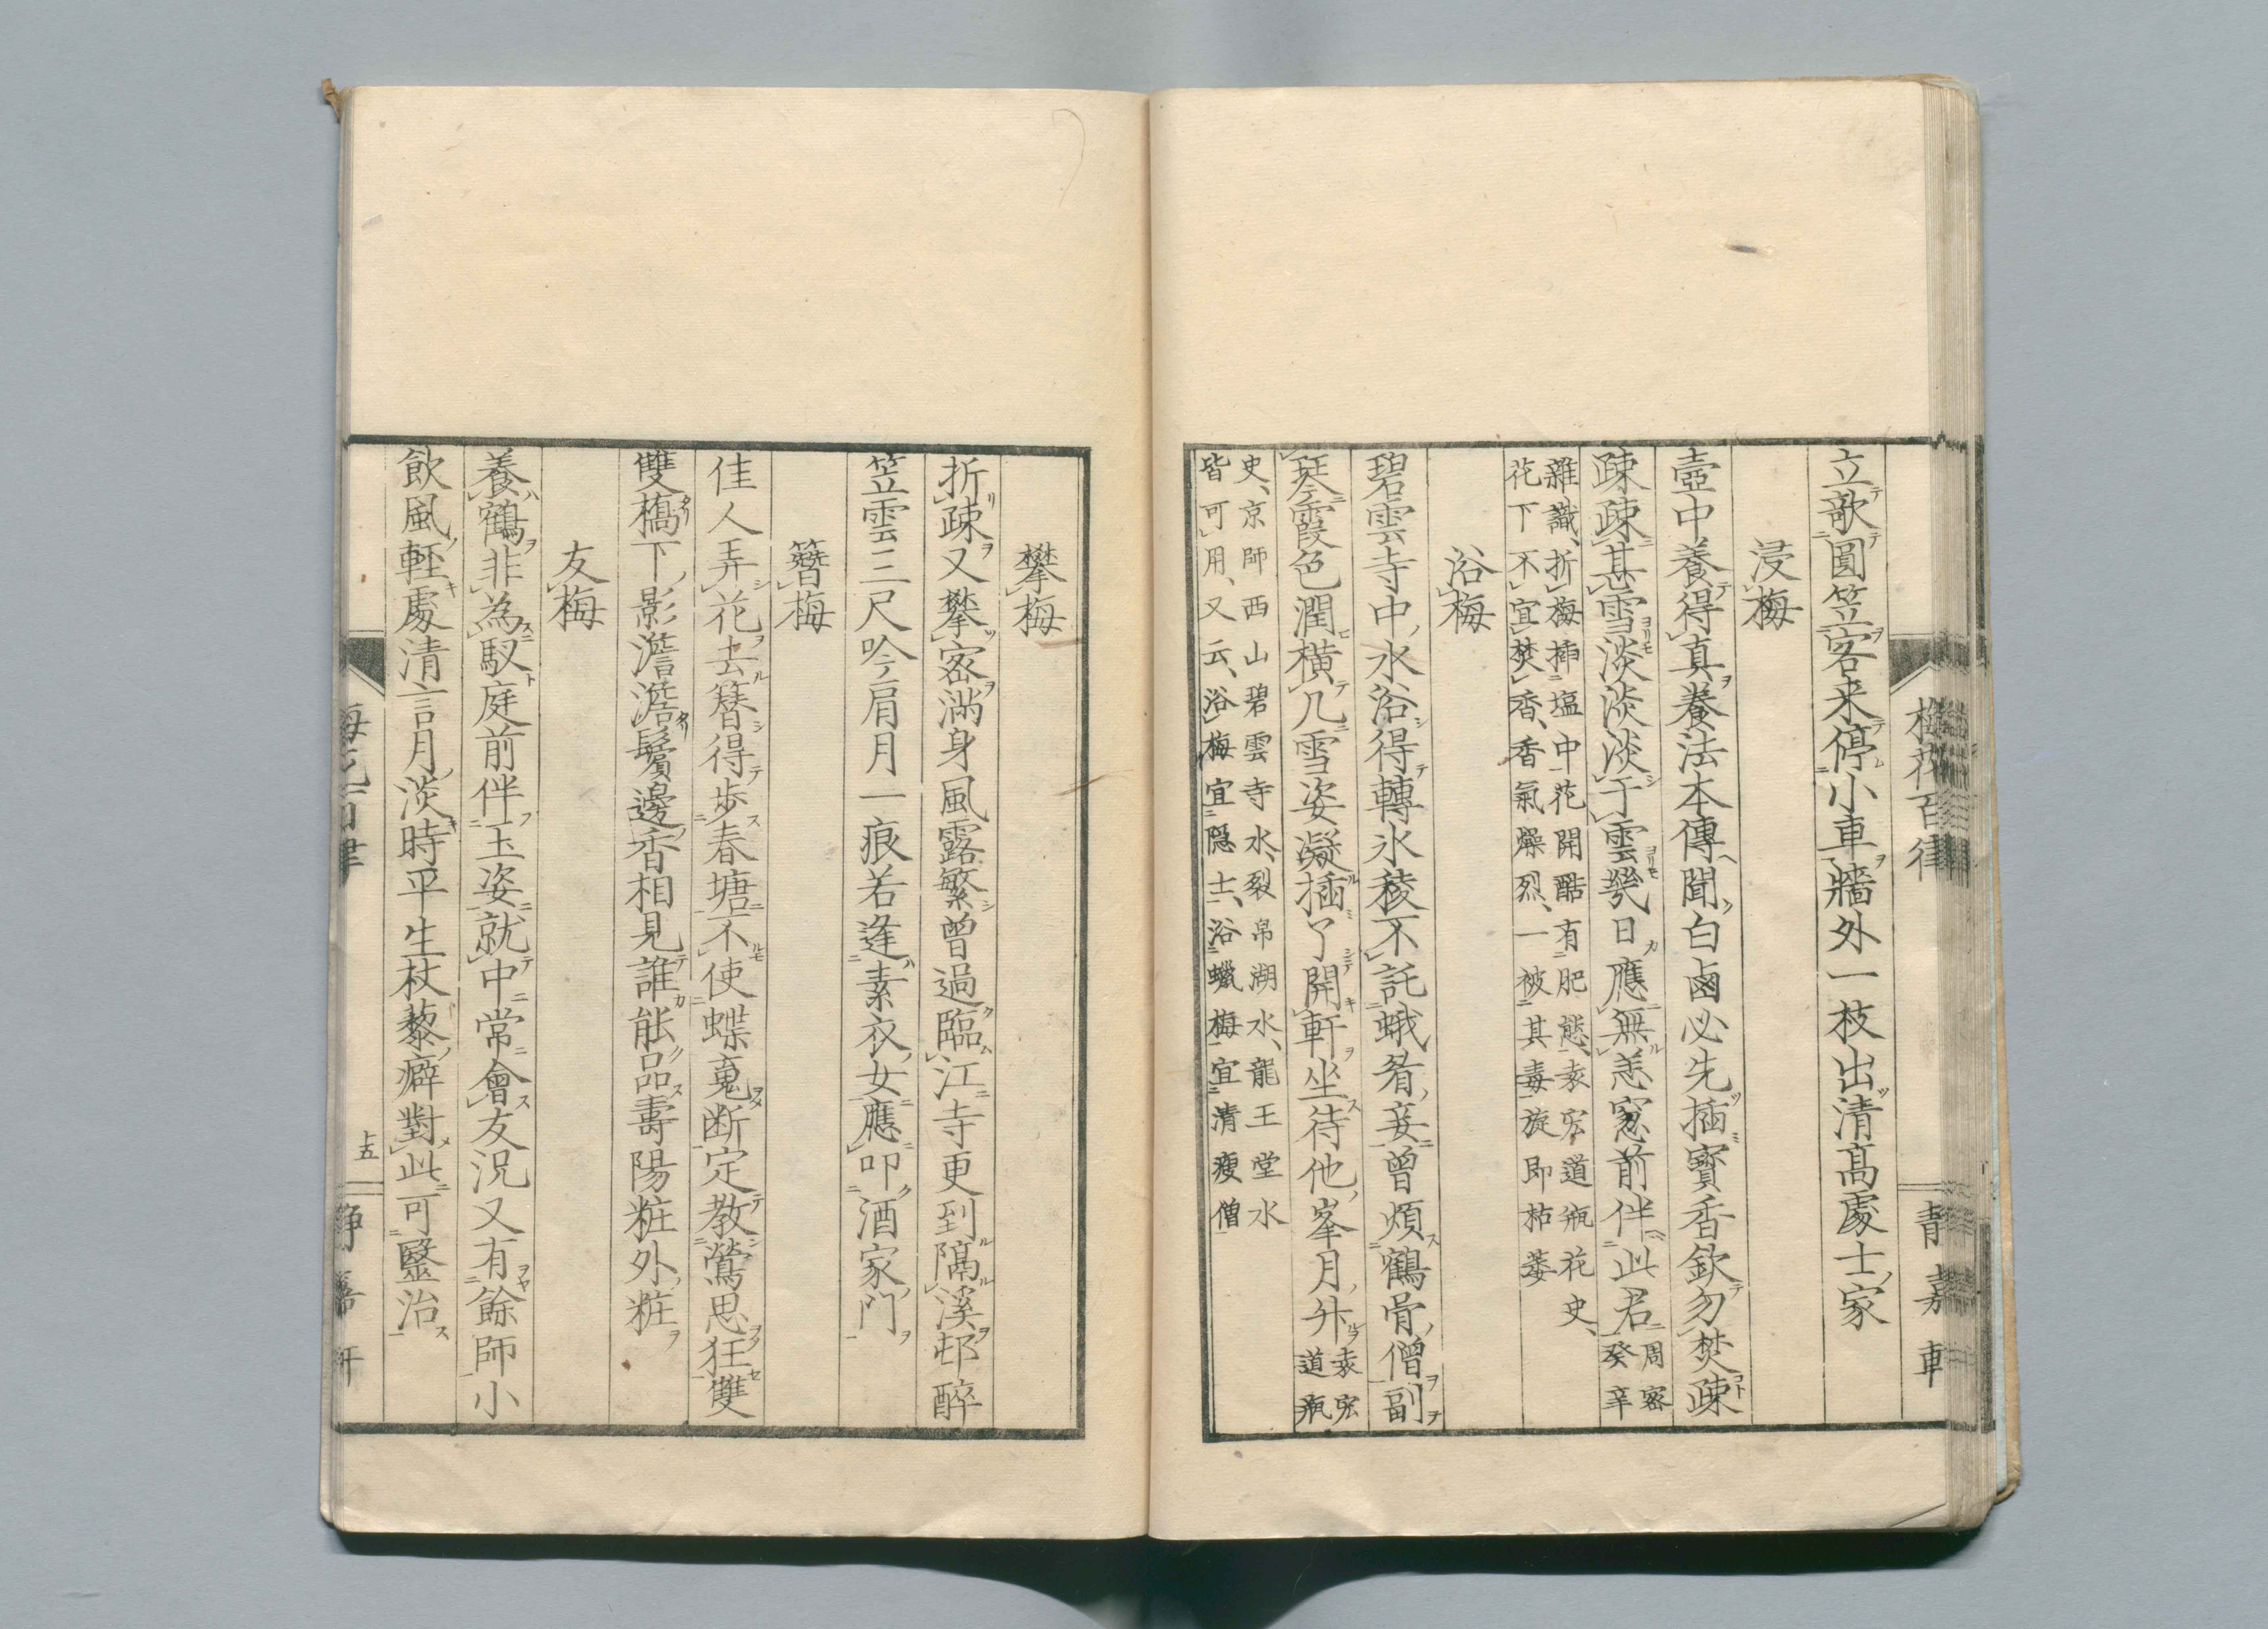 立歌圓笠客来停小車牆外一枝出清髙處士家
浸梅
壺中養得真養法本傳聞白鹵必先插寶香欽勿焚疎
疎疎甚雪淡淡淡于雲幾日應無恙窻前伴此君周密癸辛
雜識、折梅挿塩中花開酷有肥態、袁宏道瓶花史、
花下不宜焚香、香氣燥烈、一被其毒旋即枯萎
浴梅
碧雲寺中水浴得轉氷稜不託蛾眉妾曾煩鶴骨僧副
琴霞色潤横几雪姿凝插了開軒坐待他峯月升袁宏道瓶
史、京師西山碧雲寺水、裂帛湖水、龍王堂水
皆可用、又云、浴梅宜隠士、浴蠟梅宜清瘦僧
攀梅
折疎又攀密滿身風露繁曾過臨江寺更到隔溪邨醉
笠雲三尺吟肩月一痕若逢素衣女應叩酒家門
簪梅
佳人弄花去簪得歩春塘不使蝶䰟断定教鶯思狂雙
雙橋下影澹澹鬢邊香相見誰能品壽陽粧外粧
友梅
養鶴非為馭庭前伴玉姿就中常會友況又有餘師小
飲風輕處清言月淡時平生杖藜癖對此可毉治
梅花百律
上五
静嘉軒